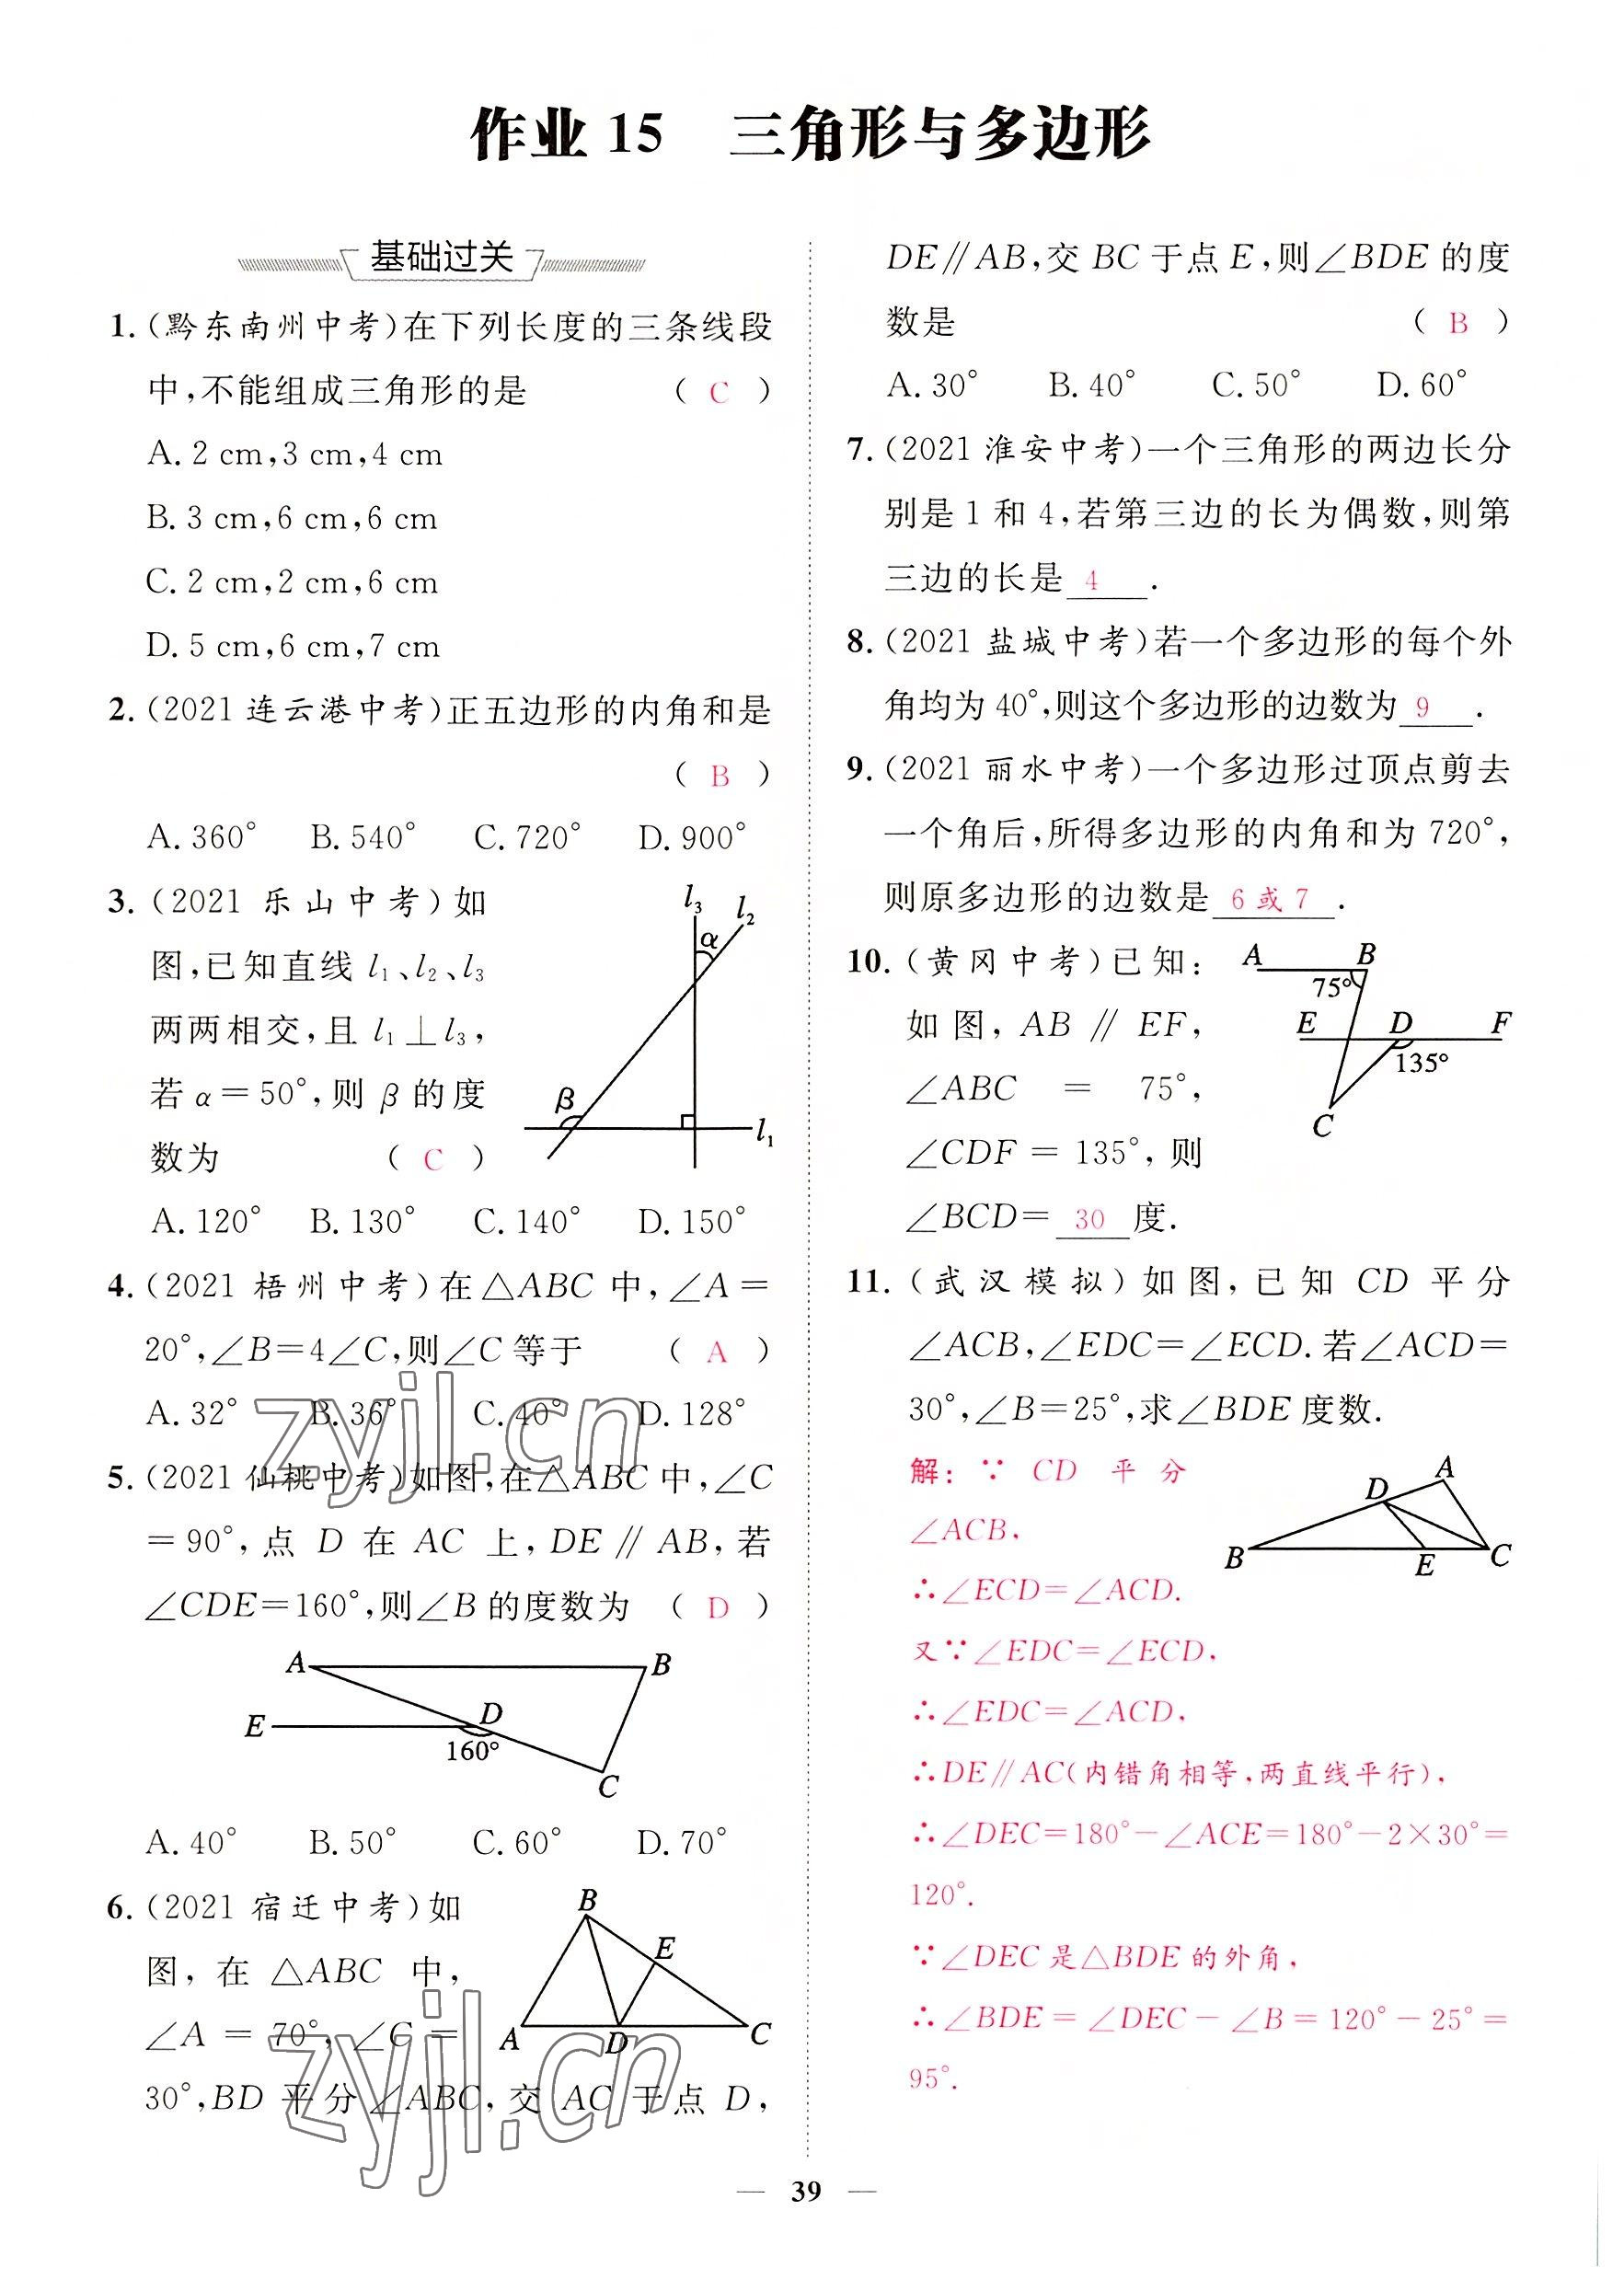 作业 15 三角形与多边形
基础过关
1.(黔东南州中考)在下列长度的三条线段
中,不能组成三角形的是 ( C )
A. 2 cm,3 cm,4 cm
B. 3 cm,6 cm,6 cm
C. 2 cm,2 cm,6 cm
D. 5 cm,6 cm,7 cm
2.(2021 连云港中考)正五边形的内角和是
( B )
A. 360° B. 540° C. 720° D. 900°
3.(2021 乐山中考)如
图,已知直线 l₁、l₂、l₃
两两相交,且 l₁⊥l₃,
若 α=50°,则 β 的度
数为 ( C )
l₃ l₂
α
β
l₁
A. 120° B. 130° C. 140° D. 150°
4.(2021 梧州中考)在△ABC 中,∠A=
20°,∠B=4∠C,则∠C 等于 ( A )
A. 32° B. 36° C. 40° D. 128°
5.(2021 仙桃中考)如图,在△ABC 中,∠C
=90°,点 D 在 AC 上,DE∥AB,若
∠CDE=160°,则∠B 的度数为 ( D )
A B
E D
160°
C
A. 40° B. 50° C. 60° D. 70°
6.(2021 宿迁中考)如
图,在△ABC 中,
∠A = 70°, ∠C =
30°,BD 平分∠ABC,交 AC 于点 D,
B
E
A D C
DE∥AB,交 BC 于点 E,则∠BDE 的度
数是 ( B )
A. 30° B. 40° C. 50° D. 60°
7.(2021 淮安中考)一个三角形的两边长分
别是 1 和 4,若第三边的长为偶数,则第
三边的长是 4 .
8.(2021 盐城中考)若一个多边形的每个外
角均为 40°,则这个多边形的边数为 9 .
9.(2021 丽水中考)一个多边形过顶点剪去
一个角后,所得多边形的内角和为 720°,
则原多边形的边数是 6 或 7 .
10.(黄冈中考)已知:
如图, AB ∥ EF,
∠ABC = 75°,
∠CDF = 135°, 则
∠BCD= 30 度.
A B
75°
E D F
135°
C
11.(武汉模拟)如图,已知 CD 平分
∠ACB,∠EDC=∠ECD. 若∠ACD=
30°,∠B=25°,求∠BDE 度数.
解:∵ CD 平分
∠ACB,
∴∠ECD=∠ACD.
又∵∠EDC=∠ECD,
∴∠EDC=∠ACD,
∴DE∥AC(内错角相等,两直线平行),
∴∠DEC=180°-∠ACE=180°-2×30°=
120°.
∵∠DEC 是△BDE 的外角,
∴∠BDE=∠DEC-∠B=120°-25°=
95°.
A
D
B E C
zyjl.cn
zyjl.cn
39